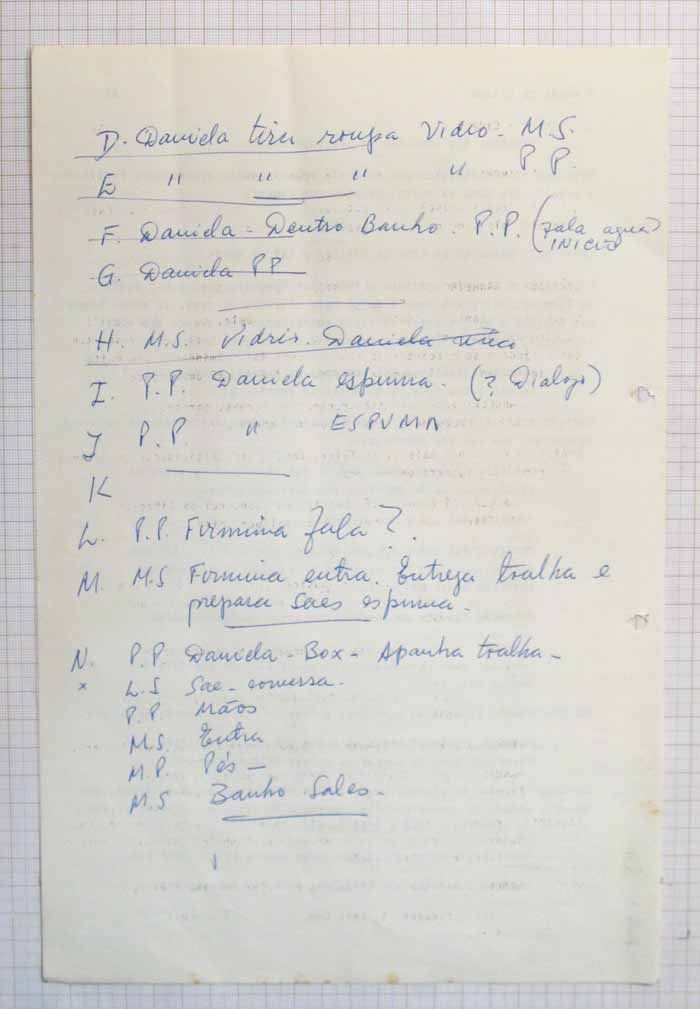 D. Daniela tira roupa Vidro - M.S.
E " " " " P P.
F. Daniela - Dentro Banho. P.P. (fala agua)
INICIO
G. Daniela PP
H. M.S. Vidris. Daniela
I. P.P. Daniela espuma. (? Dialogo)
J P.P. " ESPUMA
K
L. P.P. Firmina fala?.
M. M.S Firmina entra. Entrega toalha e
prepara Saes espuma.
N. P.P. Daniela - Box - Apanha toalha -
x L.S Sae - conversa.
P.P. Mãos
M.S. Entra
M.P. Pés -
M.S Banho Sales.